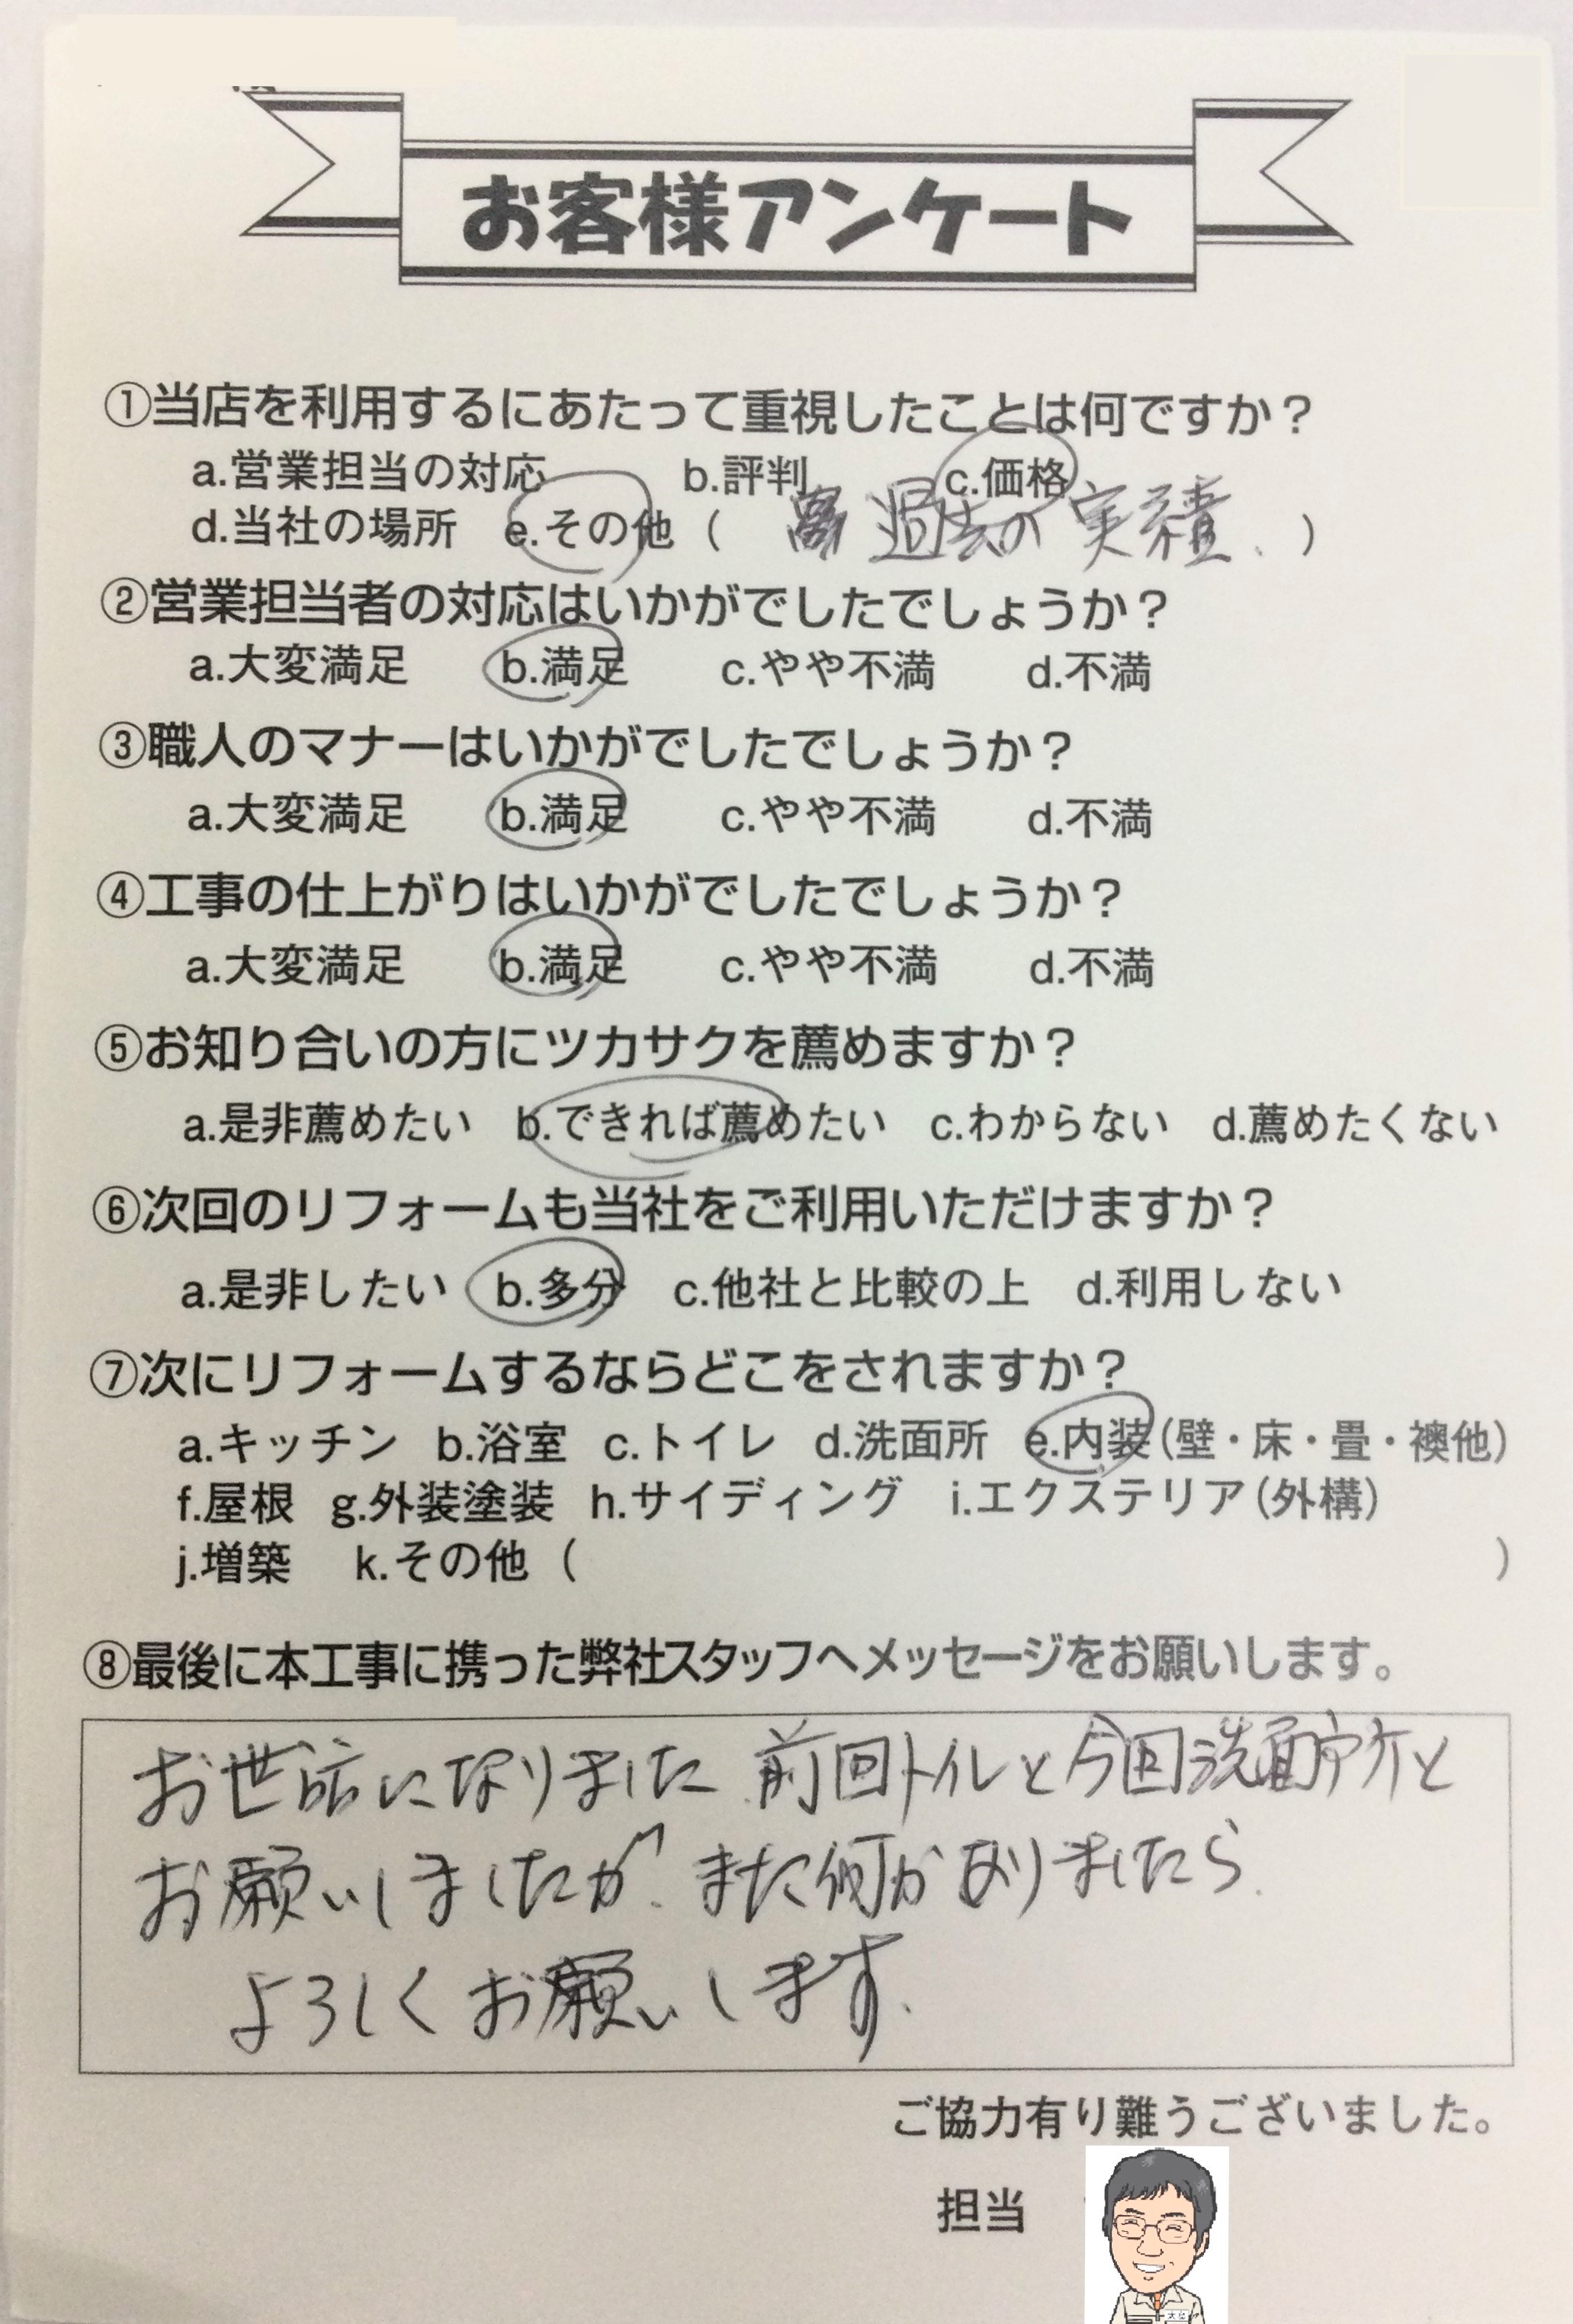 お客様アンケート
①当店を利用するにあたって重視したことは何ですか？
a.営業担当の対応 b.評判 c.価格
d.当社の場所 e.その他（ 過去の実績、）
②営業担当者の対応はいかがでしたでしょうか？
a.大変満足 b.満足 c.やや不満 d.不満
③職人のマナーはいかがでしたでしょうか？
a.大変満足 b.満足 c.やや不満 d.不満
④工事の仕上がりはいかがでしたでしょうか？
a.大変満足 b.満足 c.やや不満 d.不満
⑤お知り合いの方にツカサクを薦めますか？
a.是非薦めたい b.できれば薦めたい c.わからない d.薦めたくない
⑥次回のリフォームも当社をご利用いただけますか？
a.是非したい b.多分 c.他社と比較の上 d.利用しない
⑦次にリフォームするならどこをされますか？
a.キッチン b.浴室 c.トイレ d.洗面所 e.内装（壁・床・畳・襖他）
f.屋根 g.外装塗装 h.サイディング i.エクステリア（外構）
j.増築 k.その他（ ）
⑧最後に本工事に携った弊社スタッフへメッセージをお願いします。
お世話になりました 前回トイレと今回洗面所と
お願いしましたが、また何かありましたら、
よろしくお願いします、
ご協力有り難うございました。
担当